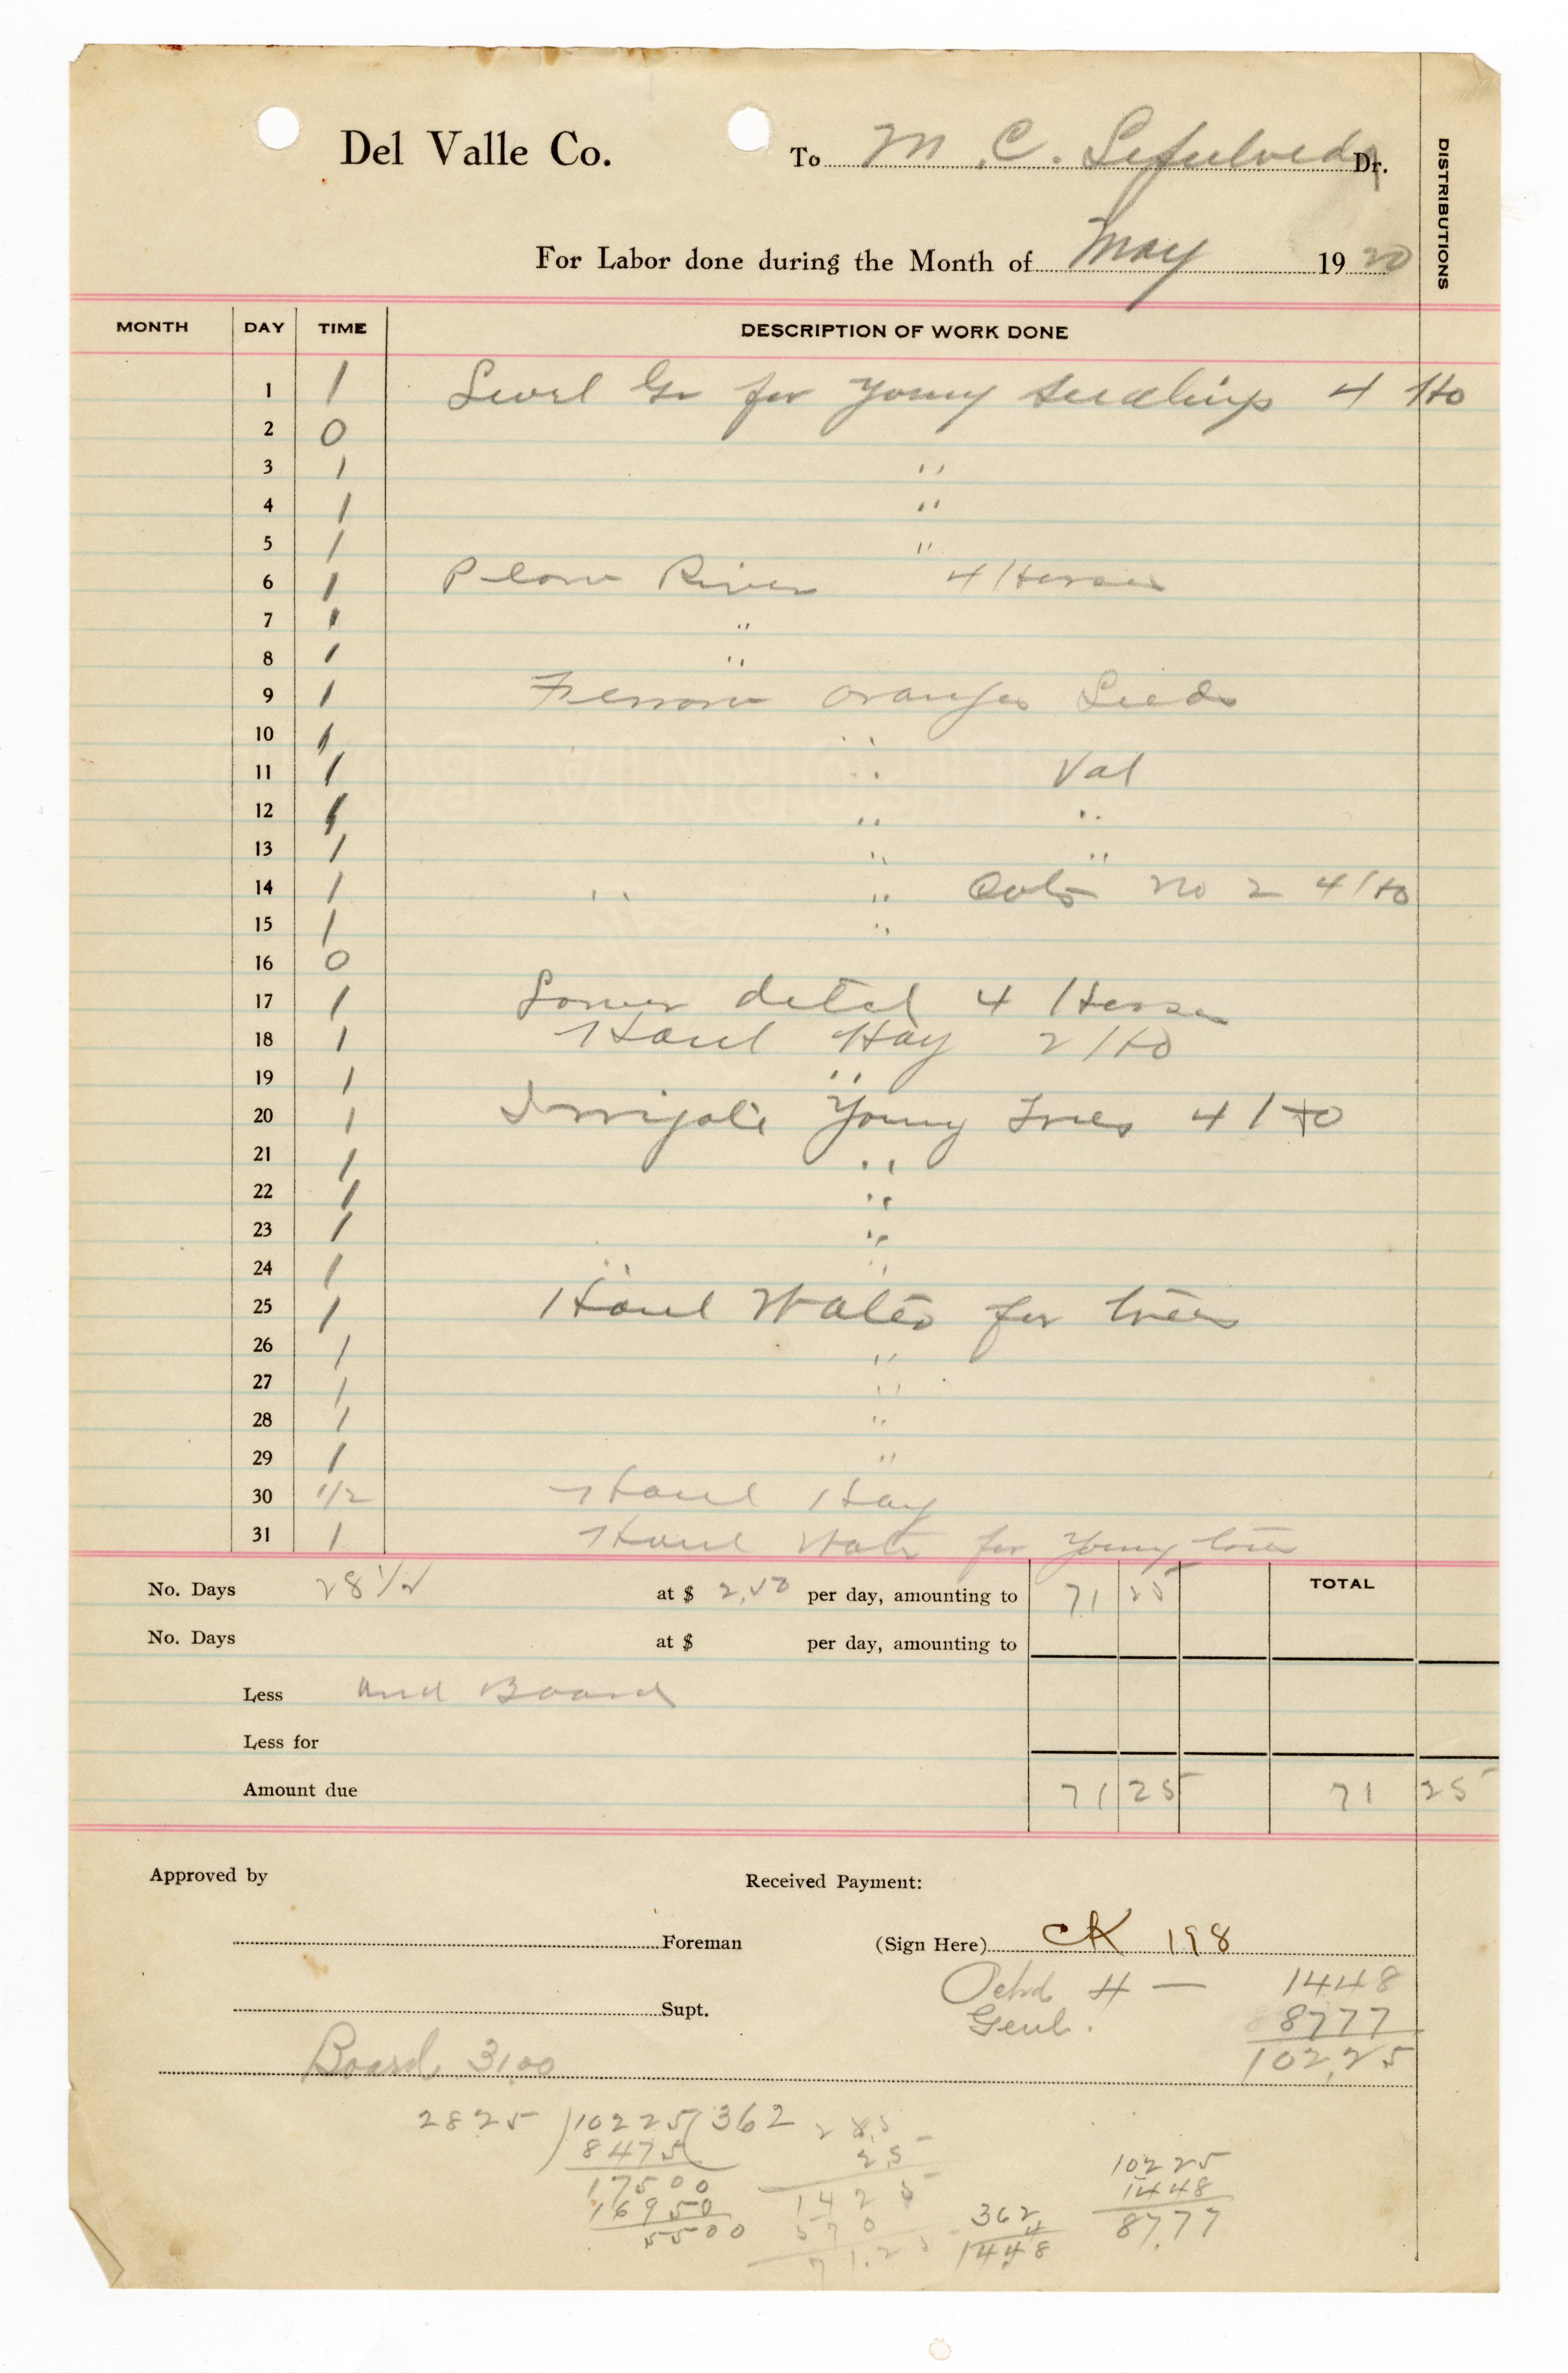 Del Valle Co. To M. C. Sepulveda Dr.
DISTRIBUTIONS
For Labor done during the Month of May 1920
MONTH DAY TIME DESCRIPTION OF WORK DONE
1 1 Level Gr for young seedlings 4 Ho
2 0
3 1 "
4 1 "
5 1 "
6 1 Plow River 4 Horses
7 1 "
8 1 "
9 1 Ferrow oranges Seeds
10 1 "
11 1 " Val
12 1 " "
13 1 " "
14 1 " " No 2 4 Ho
15 1 "
16 0
17 1 4 Horses
18 1 Haul Hay 2 Ho
19 1 "
20 1 Irrigate Young Trees 4 Ho
21 1 "
22 1 "
23 1 "
24 1 " "
25 1 Haul Water for trees
26 1 "
27 1 "
28 1 "
29 1 "
30 1/2 Haul Hay
31 1 Haul Water for Young trees
No. Days 28 1/2 at $ 2.50 per day, amounting to 71 25 TOTAL
No. Days at $ per day, amounting to
Less and Board
Less for
Amount due 71 25 71 25
Approved by Received Payment:
Foreman (Sign Here) CK 198
Orchd H — 1448
Supt. Genl. 8777
102.25
Board 31.00
2825 ) 10225 ( 362 28.5
8475 2.5
17500 1425
16950 570
5500 71.25
362
4
1448
10225
1448
87.77